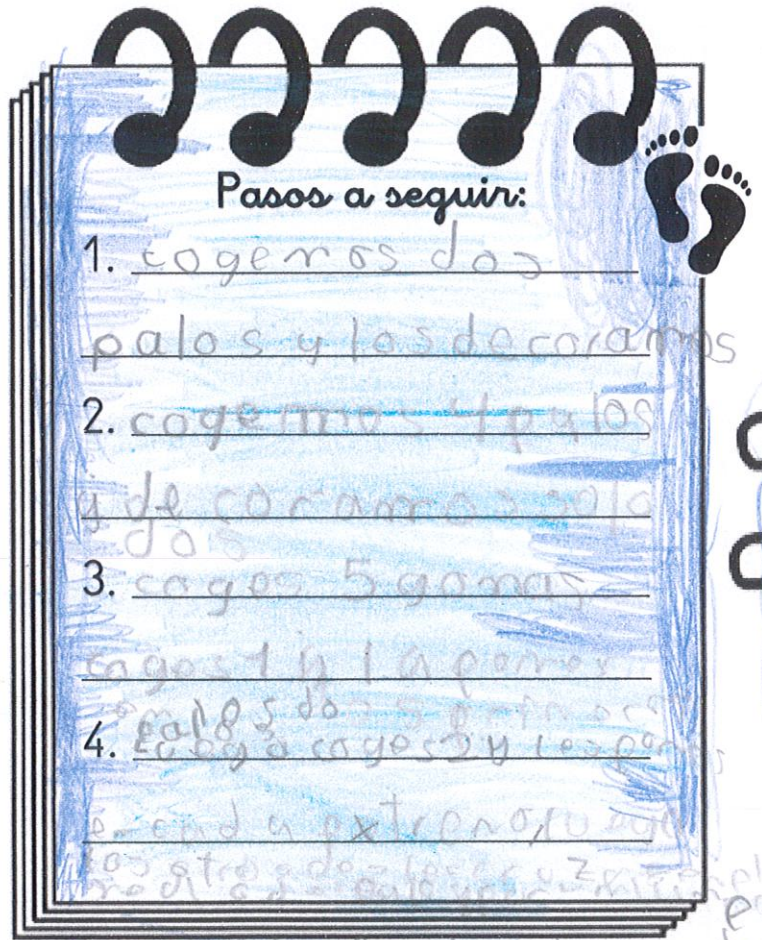 Pasos a seguir:
1. cogemos dos
palos y los decoramos
2. cogemos 4 palos
y decoramos solo
dos
3. coges 5 gomas
coges 1 y la pones
palos dos
4. Luego coges 2 y los pones
en cada extremo, luego
los otro